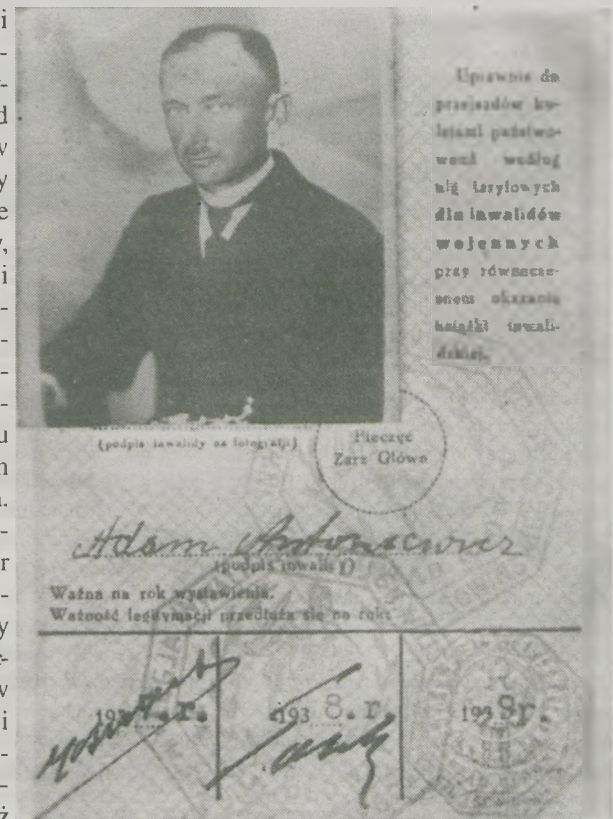 i
-
-
-
d
w
y
e
y,
i
-
-
-
-
-
u
n
a.
-
r
-
y
-
w
i
-
-
ż
Uprawnia do
przejazdów ko-
lejami państwo-
wemi według
ulg taryfowych
dla inwalidów
wojennych
przy równocze-
snem okazaniu
książki inwali-
dzkiej.
(podpis inwalidy na fotografji)
Pieczęć
Zarz Główn
Adam Antoniewicz
(podpis inwalidy)
Ważna na rok wystawienia.
Ważność legitymacji przedłuża się na rok:
1937.r.
1938.r.
1939r.